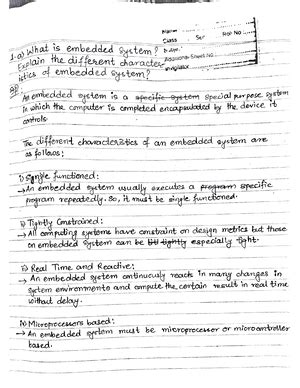 Name
Class Sec Roll No
Subject
Additional Sheet No
Invigilator
1. a) What is embedded system?
Explain the different character-
istics of embedded system?
An embedded system is a specific system special purpose system
in which the computer is completed encapsulated by the device it
controls
The different characteristics of an embedded system are
as follows:
i) Single functioned:
→ An embedded system usually executes a program specific
program repeatedly. So, it must be single functioned.
ii) Tightly Constrained:
→ All computing systems have constraint on design metrics but those
on embedded system can be especially tight.
iii) Real Time and Reactive:
→ An embedded system continuously reacts in many changes in
system environments and compute the certain result in real time
without delay.
iv) Microprocessors based:
→ An embedded system must be microprocessor or microcontroller
based.